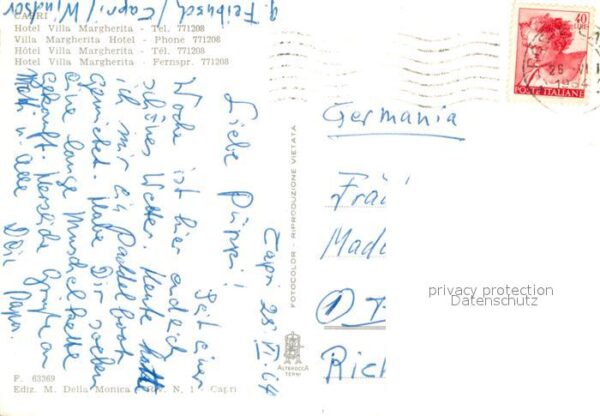 CAPRI
Hotel Villa Margherita - Tel. 771208
Villa Margherita Hotel - Phone 771208
Hôtel Villa Margherita - Tél. 771208
Hôtel Villa Margherita - Fernspr. 771208
Feibusch / Capri / Windsor
Capri 25 VI. 64
Liebe Püppi!
Seit einer
Woche ist hier endlich
schönes Wetter. Heute hatte
ich mir ein Paddelboot
gemietet. Habe Dir soeben
eine lange Muschelkette
gekauft. Herzliche Grüße an
Mutti u. alle
Dein Papa.
FOTOCOLOR - RIPRODUZIONE VIETATA
ALTEROCCA
TERNI
F. 63369
Ediz. M. Della Monica - R. V. N. 1 - Capri
40
LIRE
POSTE ITALIANE
26
Germania
Frä
Mad
Rich
privacy protection
Datenschutz